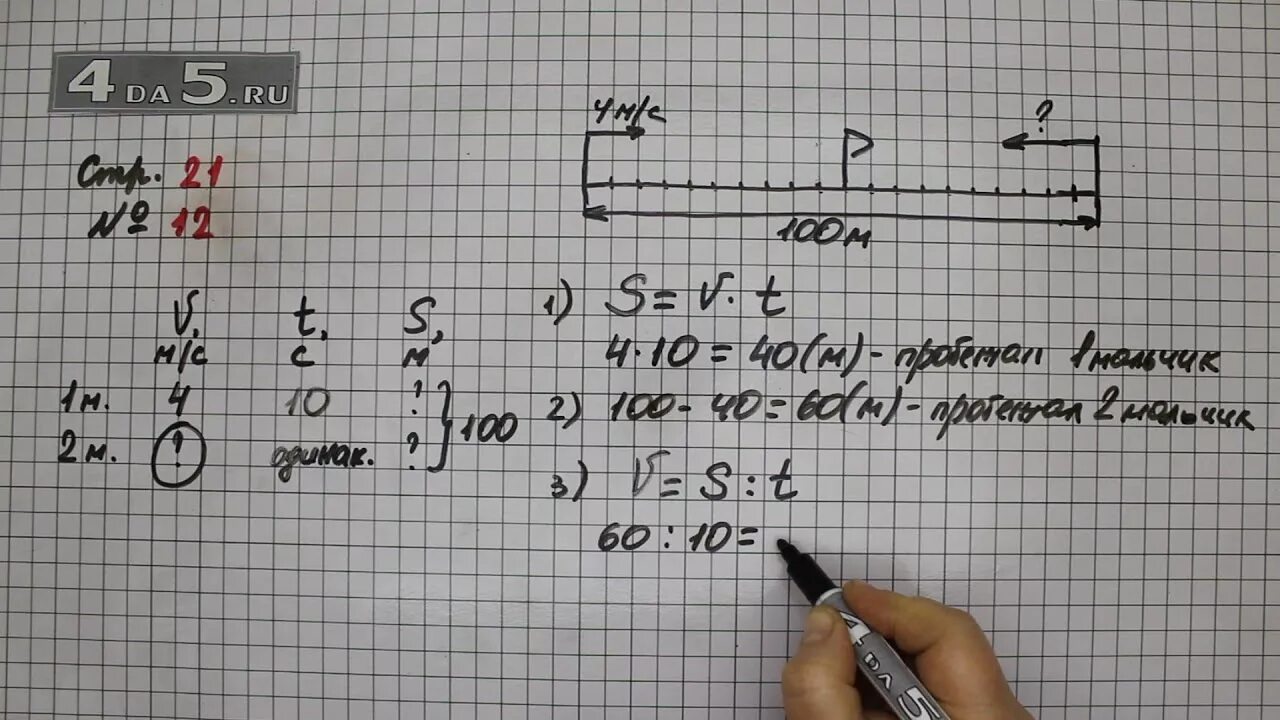 4 DA 5.RU
Стр. 21
№ 12
4 м/с
?
100 м
V, t, S,
м/с с м
1 м. 4 10 ?
2 м. ? одинак. ?
100
1) S = V · t
4 · 10 = 40 (м) - пробежал 1 мальчик
2) 100 - 40 = 60 (м) - пробежал 2 мальчик
3) V = S : t
60 : 10 =
4 DA 5